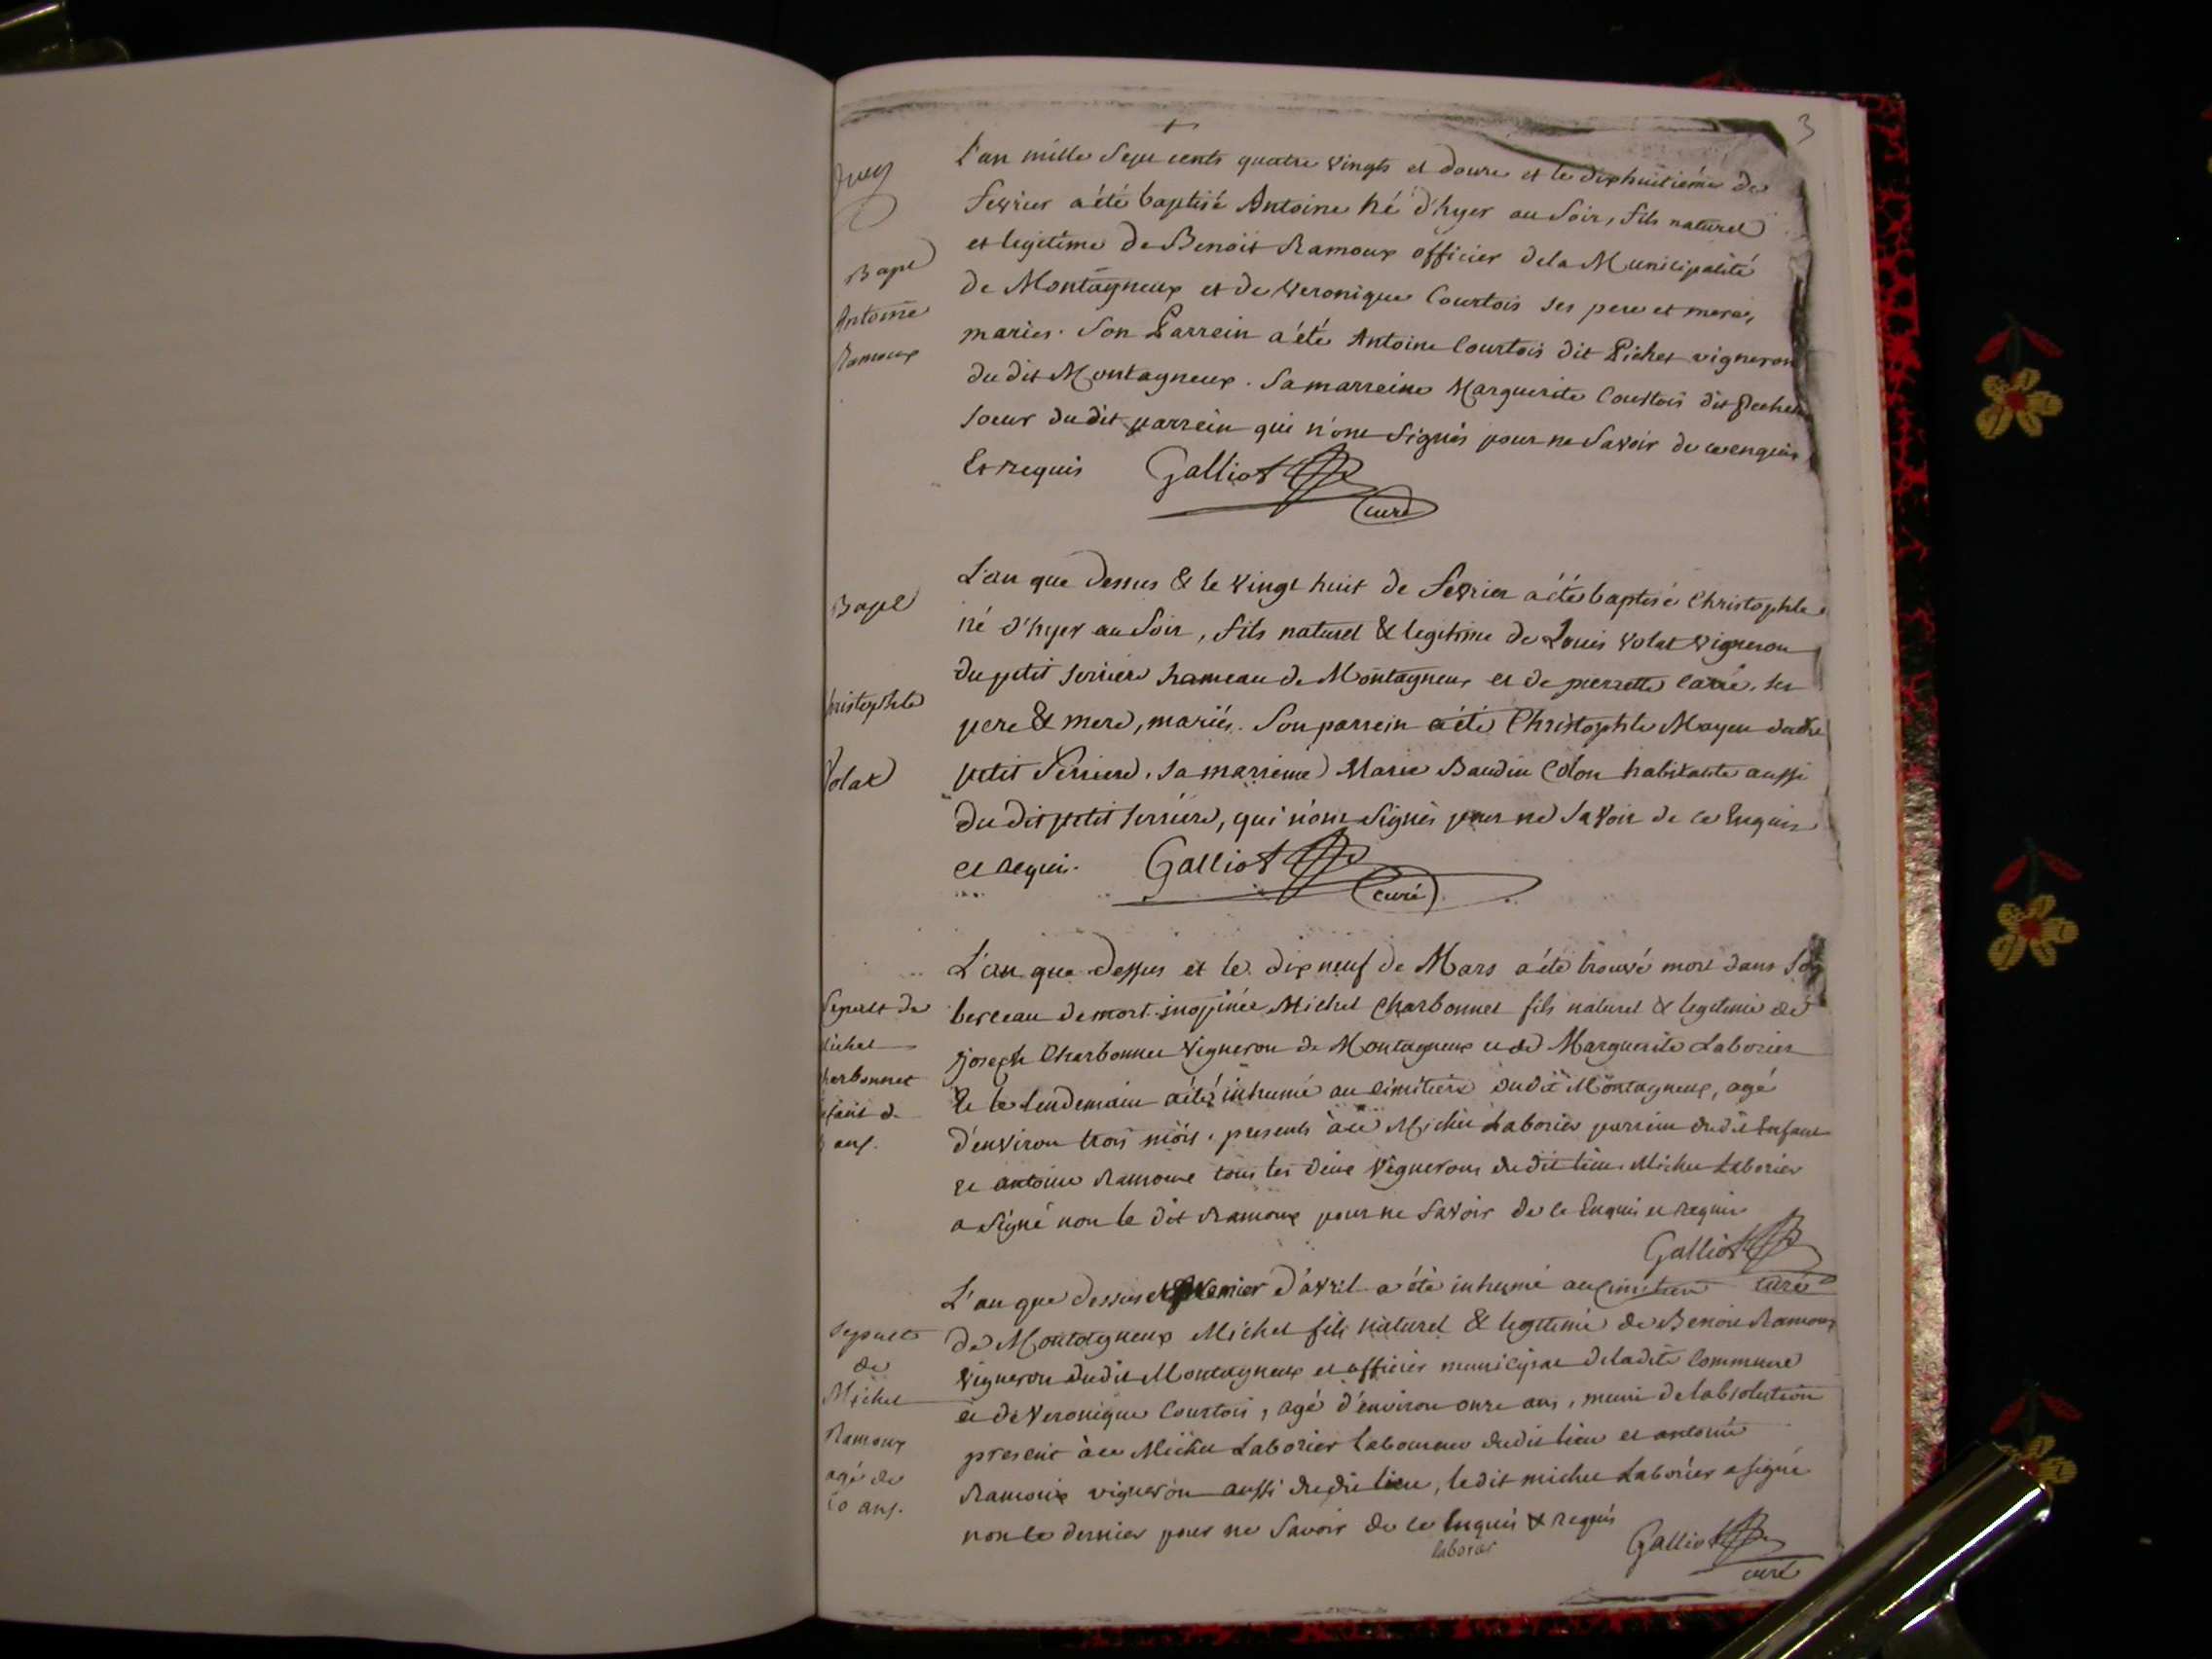 3
L'an mille Sept cents quatre vingts et douze et le dixhuitiéme de
fevrier a été baptisé Antoine né d'hyer au Soir, fils naturel
et legitime de Benoit Ramoux officier de la Municipalité
de Montagneux et de Veronique Courtois ses pere et mere,
mariés. Son Parrein a été Antoine Courtois dit Pichet vigneron
du dit Montagneux. Sa marreine Marguerite Courtois dit
soeur du dit parrein qui n'ont Signés pour ne Savoir de ce enquis
Et requis Galliot
curé
Bapt
Antoine
Ramoux
L'an que dessus & le vingt huit de fevrier a été baptisé Christophle
né d'hyer au Soir, fils naturel & legitime de Louis Volat Vigneron
du petit serriere hameau de Montagneux et de pierrette carré, ses
pere & mere, mariés. Son parrein a été Christophle Mayen dudit
petit Serriere. Sa marreine Marie Baudin Colon habitante aussi
du dit petit serriere, qui n'ont Signés pour ne Savoir de ce Enquis
et requis. Galliot
curé
Bapt
hristophle
Volat
L'an que dessus et le dix neuf de Mars a été trouvé mort dans Son
berceau de mort inopinée Michel Charbonnet fils naturel & legitime de
joseph Charbonnet Vigneron de Montagneux et de Marguerite Laborier
Et le lendemain a été inhumé au cimitiere du dit Montagneux, agé
d'environ trois mois. presents à ce Michel Laborier parrein du dit Enfant
et antoine Ramoux tous les deux Vignerons du dit lieu. Michel Laborier
a Signé non le dit Ramoux pour ne Savoir de ce Enquis et requis
Galliot
curé
Sepult de
ichel
harbonnet
L'an que dessus et le premier d'avril a été inhumé au Cimitiere
de Montagneux Michel fils naturel & legitime de Benoit Ramoux
Vigneron du dit Montagneux et officier municipal de la dite Commune
et de Veronique Courtois, agé d'environ onze ans, muni de l'absolution
present à ce Michel Laborier laboureur du dit lieu et antoine
Ramoux vigneron aussi du dit lieu, le dit michel Laborier a signé
non le dernier pour ne Savoir de ce Enquis & requis
laborier Galliot
curé
Sepult
de
Michel
Ramoux
agé de
10 ans.